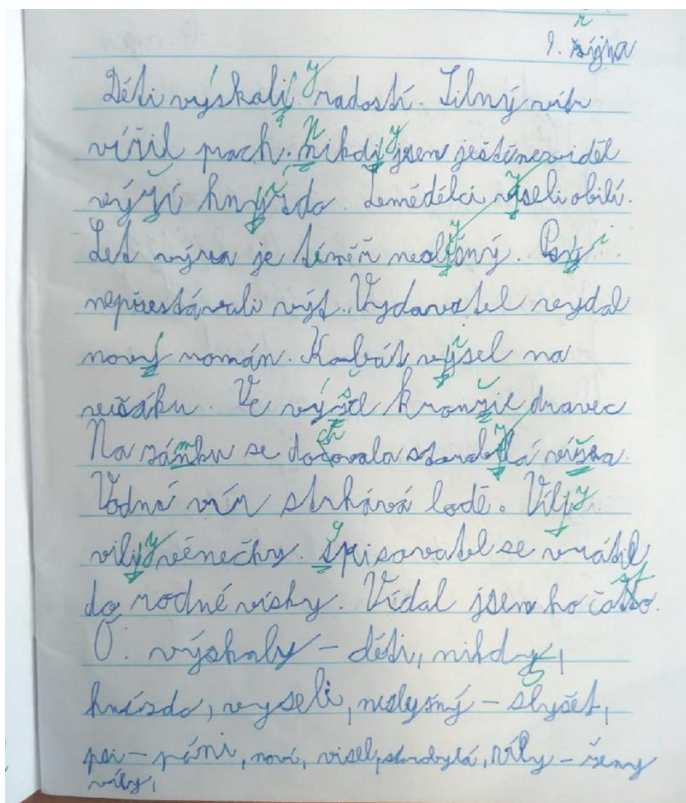 9. října
Děti výskali radostí. Silný vítr
vířil prach. Nikdy jsem ještě neviděl
výří hnýzdo. Zemědělci vyseli obilí.
Let výra je téměř neslyšný. Psi
nepřestávali výt. Vydavatel vydal
nový román. Kabát vysel na
věšáku. Ve výšce kroužil dravec
Na zámku se dochovala starobylá
Vodní vír strhává lodě. Víly
vily věnečky. Spisovatel se vrátil
do rodné vísky. Vídal jsem ho často.
O. výskaly – děti, nikdy,
hnízdo, vyseli, neslyšný – slyšet,
psi – páni, nový, visel, starobylá, víly – ženy
vily,